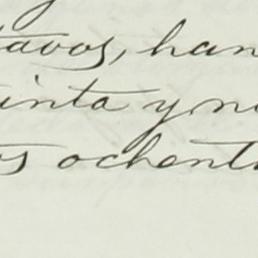 tavos, han
inta y nu
os ochent